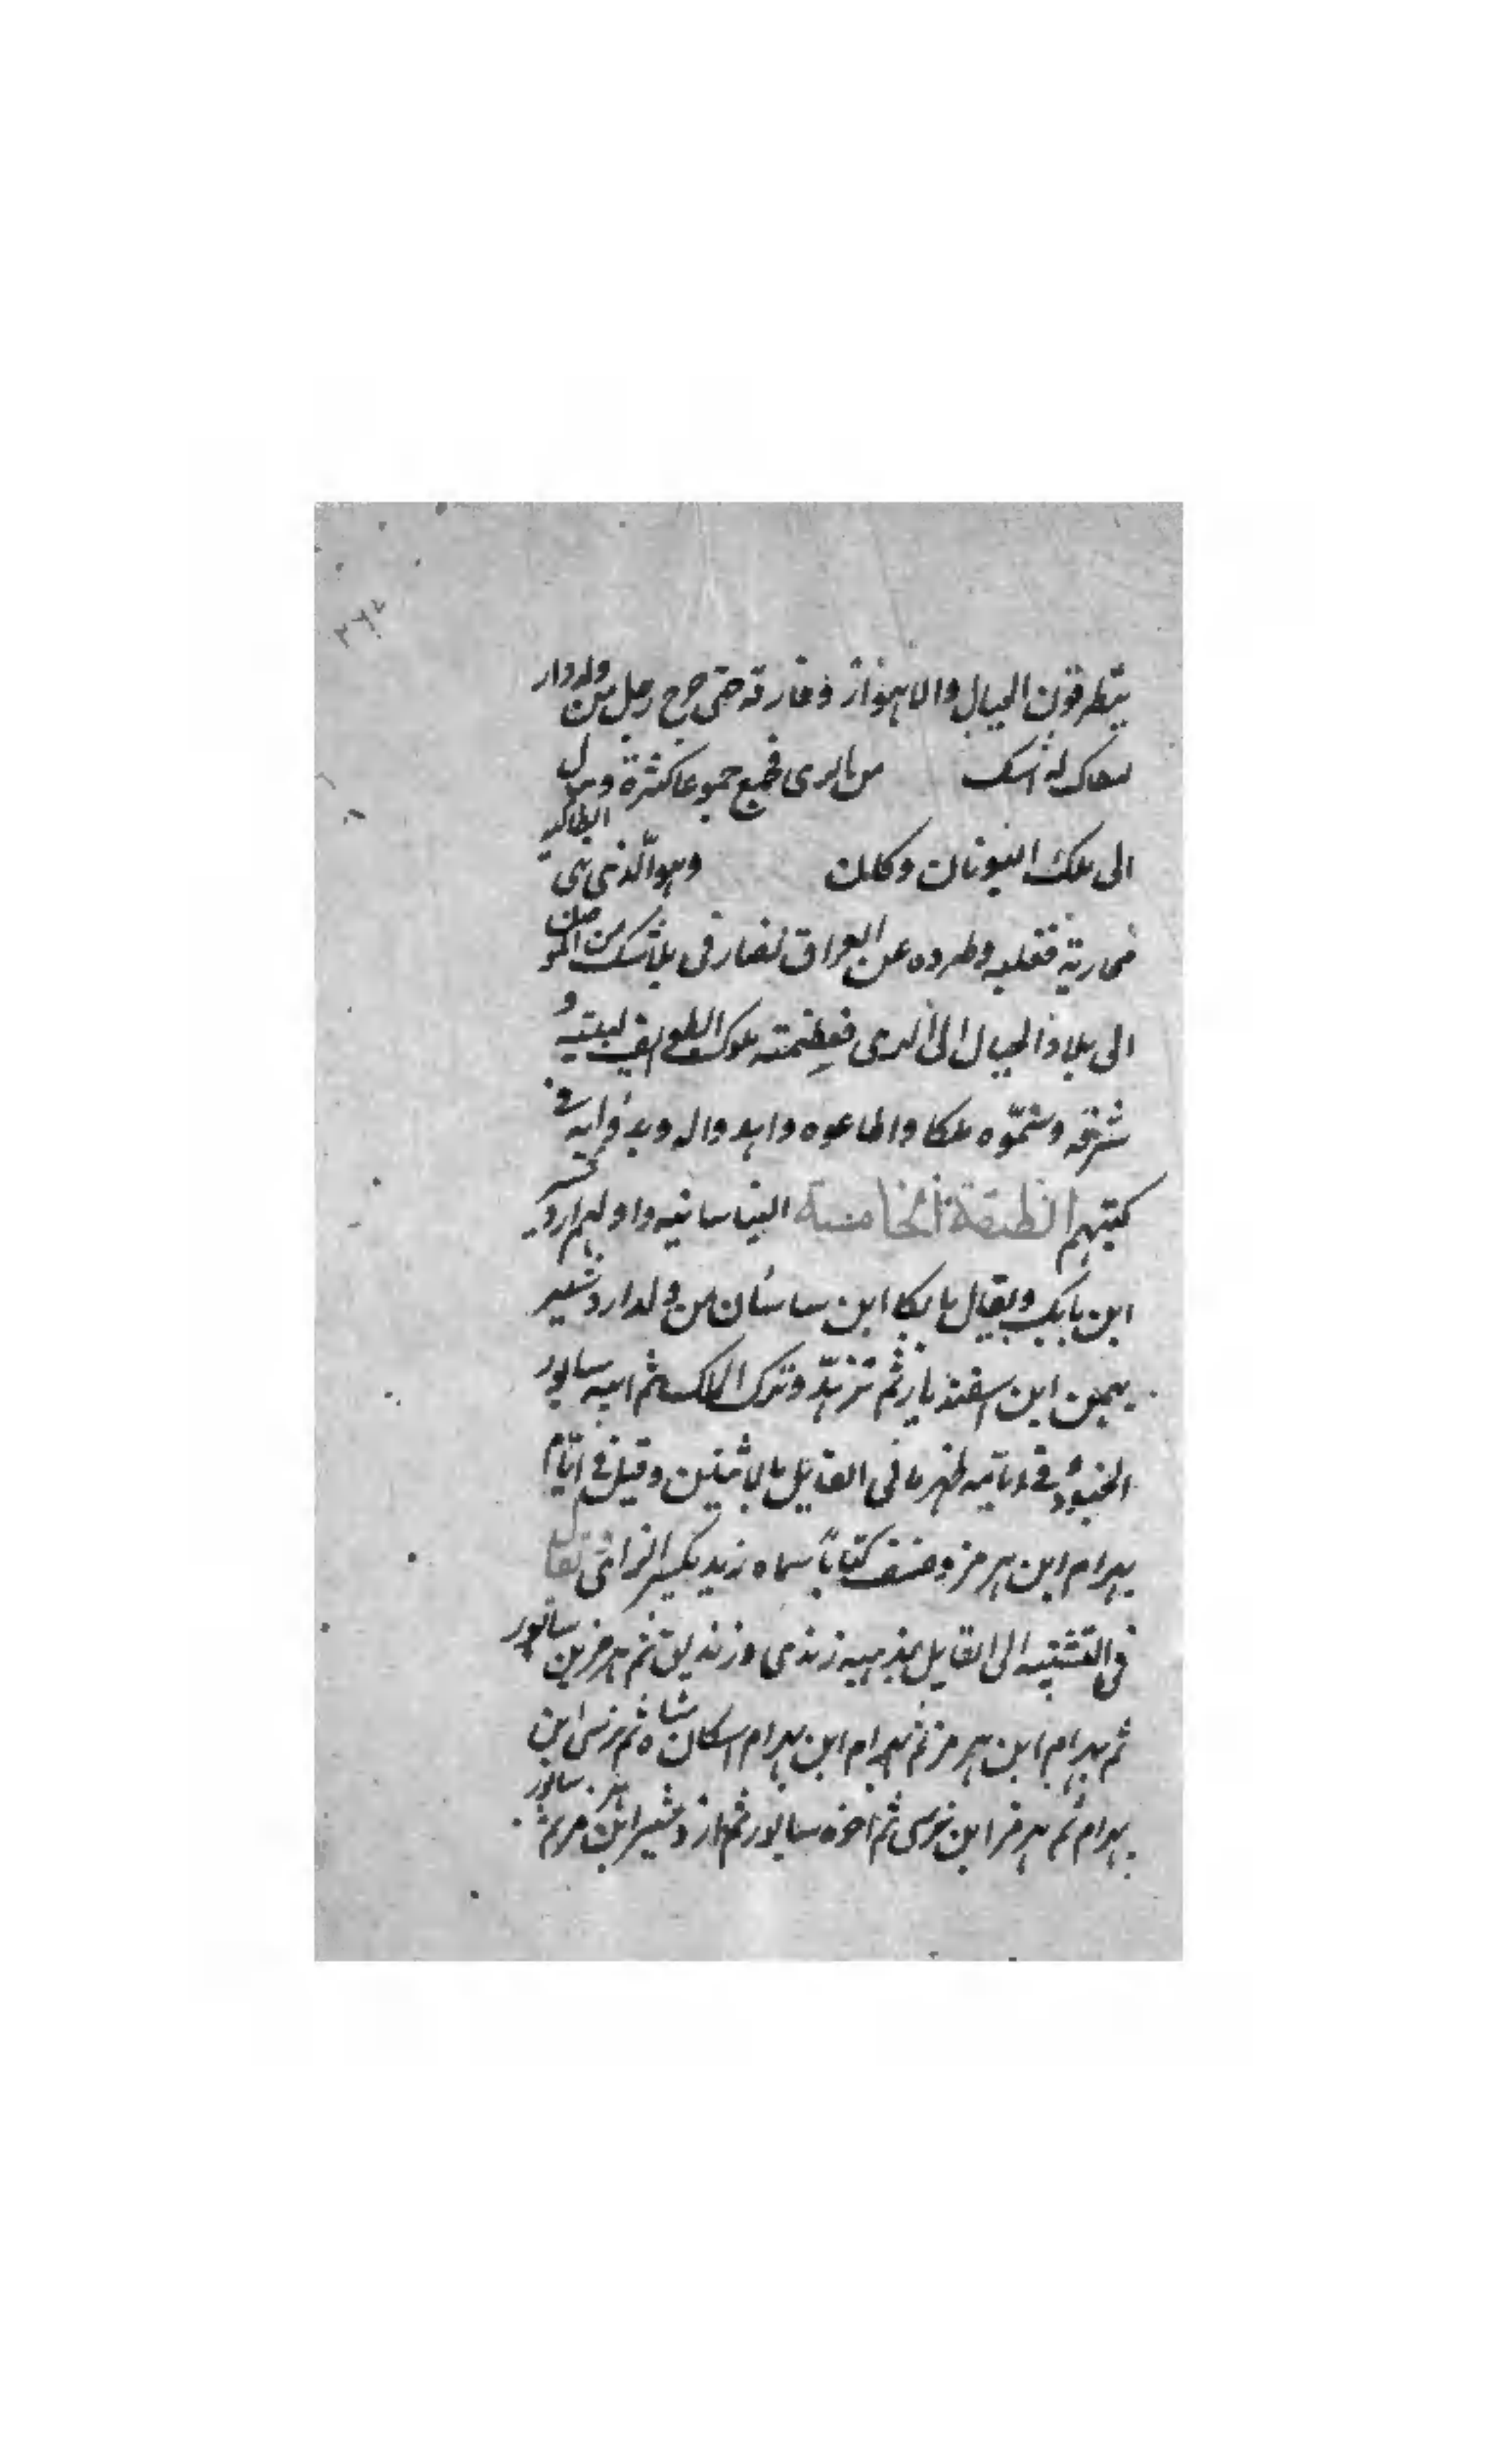 يتطرفون الجبال والاهواز وفارقه حتى خرج رجل من ولد دار
له اشك من بالرى فجمع جموعا كثيرة وسال
الى ملك اليونان وكان وهو الذى بنى انطاكيه
فحاربه فغلبه وطرده عن العراق فصار فى يد اشك من الموصل
الى بلاد الجبال الى الرى فعظمته ملوك الطوايف لبيته و
شرفه وسمّوه ملكا واطاعوه واهدوا له وبدوا به فى
كتبهم الطبقة الخامسة الساسانيه واولهم اردشير
ابن بابك ويقال بابكا ابن ساسان من ولد اردشير
بهمن ابن اسفنديار ثم تزهّد وترك الملك ثم ابنه سابور
الجنود فى ايامه ظهر مانى القايل بالاثنين وقيل فى ايام
بهرام ابن هرمز وصنف كتاباً سماه زند يقال
فى النسبه الى القايل بمذهبه زندى وزنديق ثم هرمز بن سابور
ثم بهرام ابن هرمز ثم بهرام ابن بهرام سكان شاه ثم نرسى ابن
بهرام ثم هرمز ابن نرسى ثم اخوه سابور ثم اردشير ابن هرمز ثم سابور